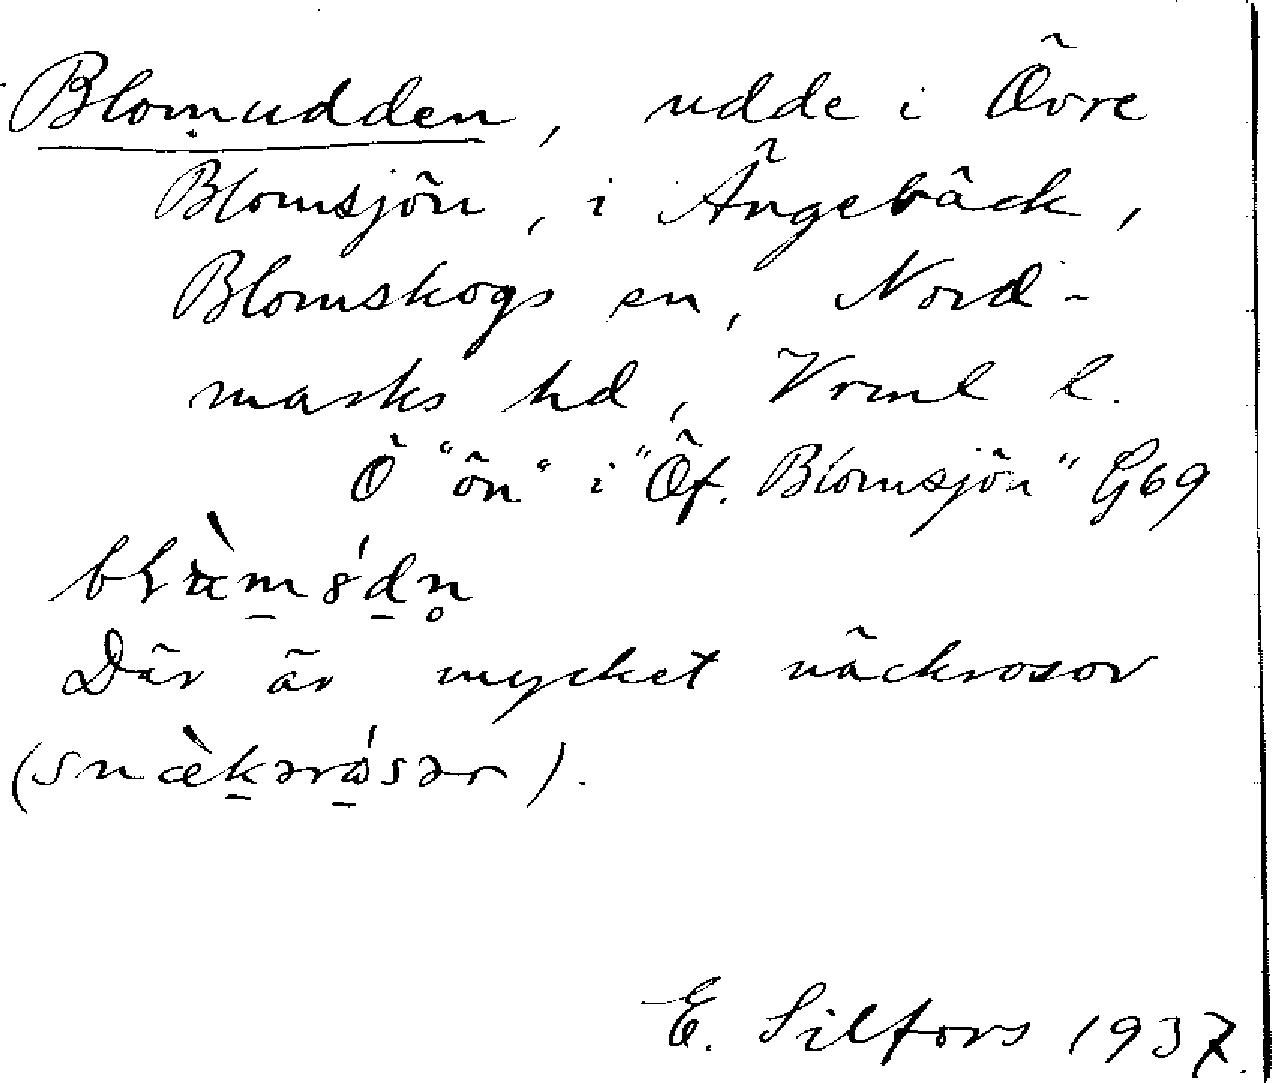 Blomudden, udde i Övre
Blomsjön, i Ängebäck,
Blomskogs sn, Nord-
marks hd, Vrml l.
Ö "ön" i "Öf. Blomsjön" G69
Där är mycket näckrosor
(snæ̀kərǻsər).
E. Silfors 1937.